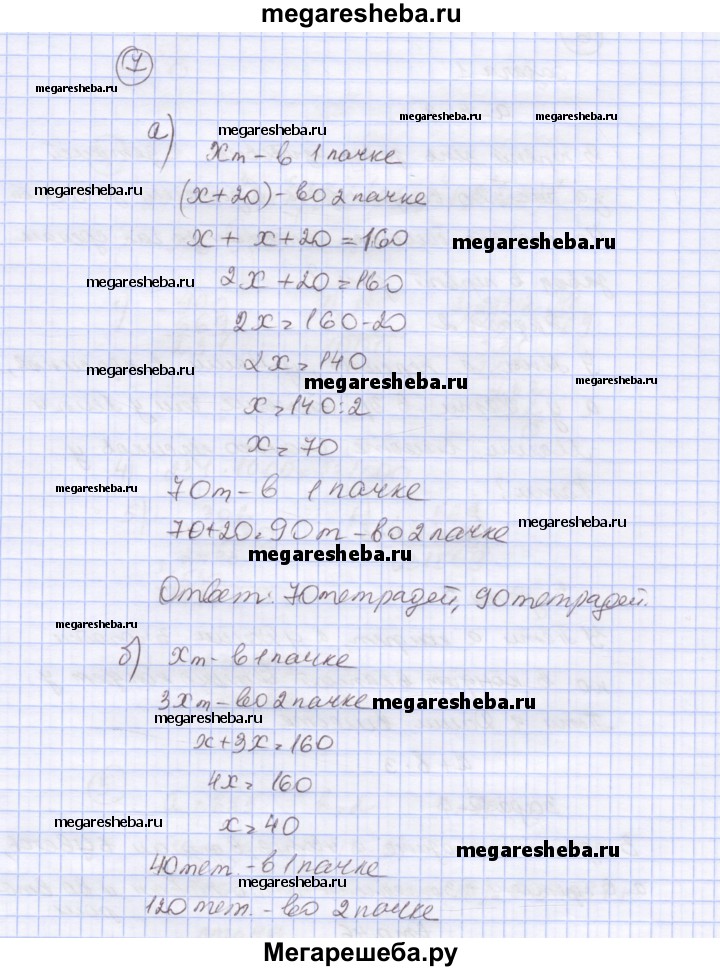 megaresheba.ru
7
megaresheba.ru
а) megaresheba.ru megaresheba.ru
Хт - в 1 пачке
megaresheba.ru (х+20) - во 2 пачке
х + х+20 = 160 megaresheba.ru
megaresheba.ru 2х +20=160
2х = 160-20
megaresheba.ru 2х = 140
megaresheba.ru megaresheba.ru
х=140:2
х = 70
megaresheba.ru 70т - в 1 пачке
70+20=90т - во 2 пачке megaresheba.ru
megaresheba.ru
Ответ: 70тетрадей, 90тетрадей.
megaresheba.ru
б) Хт - в 1 пачке
3Хт - во 2 пачке megaresheba.ru
megaresheba.ru
х+3х=160
4х= 160
megaresheba.ru х=40
40тет. - в 1 пачке megaresheba.ru
megaresheba.ru
120тет. - во 2 пачке
Мегарешеба.ру